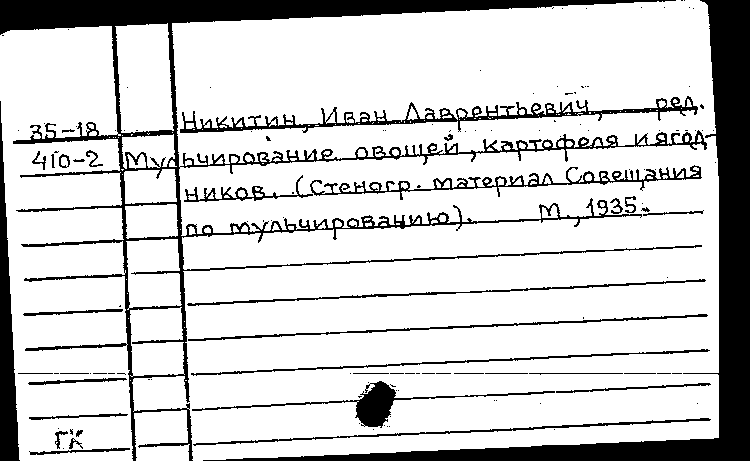 Никитин, Иван Лаврентьевич, ред.
35-18
410-2 Мульчирование овощей, картофеля и ягод-
ников. (Стеногр. материал Совещания
по мульчированию). М., 1935.
ГК